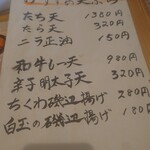 たち天 1380円
たら天 320円
ニラ正油 150円
和牛もつ天 980円
辛子明太子天 320円
ちくわ磯辺揚げ 280円
白玉の磯辺揚げ 130円